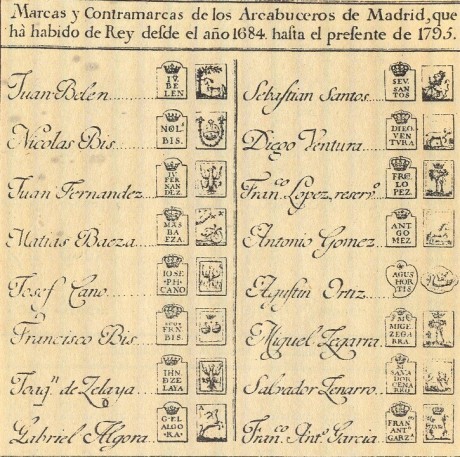 Marcas y Contramarcas de los Arcabuceros de Madrid, que
hà habido de Rey desde el año 1684. hasta el presente de 1795.
Juan Belen
IV. BE LEN
Nicolas Bis
NCOL. BIS.
Juan Fernandez
IV FER NAN DEZ.
Matias Baeza
MAS BA EZA.
Josef Cano
IOSE P·H· CANO
Francisco Bis
FRN. BIS.
Joaqn. de Zelaya
IHN. DZE LAYA
Gabriel Algora
G·EL AL GO RA·
Sebastian Santos
SEV. SAN TOS
Diego Ventura
DIEO VEN TVRA
Franco. Lopez, reservo.
FRco LO PEZ.
Antonio Gomez
ANT GO MEZ
Agustin Ortiz
AGUS HOR TIS
Miguel Zegarra
MIGE ZEGA BRA.
Salvador Zenarro
SA.VA DOR CENA RRO
Franco. Anto. Garcia
FRAN ANTo GARZA